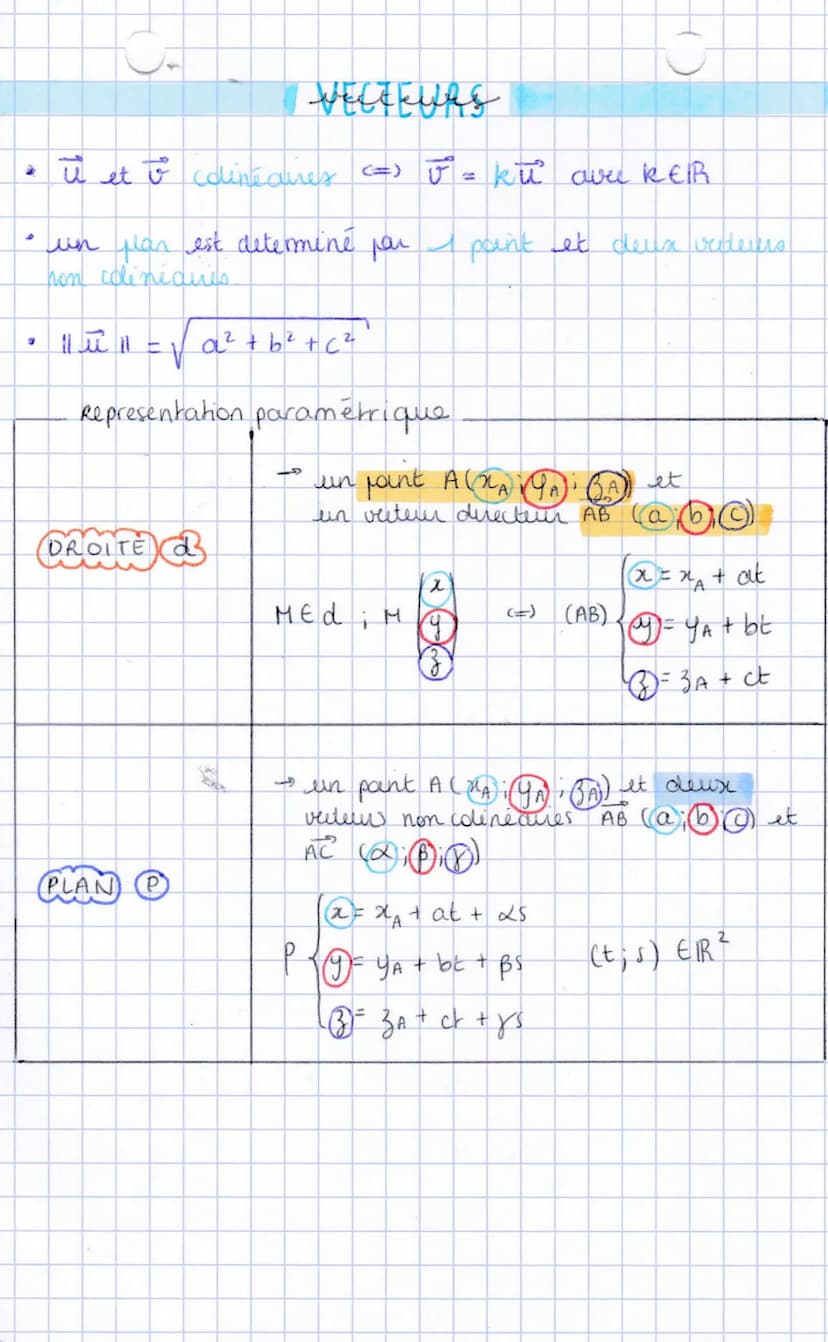 VECTEURS
vecteurs
• u⃗ et v⃗ colinéaires <=> v⃗ = ku⃗ avec k∈ℝ
• un plan est determiné par 1 point et deux vecteurs
non colinéaires.
• ||u⃗|| = √(a² + b² + c²)
Representation paramétrique
→ un point A(x_A ; y_A ; z_A) et
un vecteur directeur AB⃗ (a ; b ; c)
DROITE d
M∈d ; M (x y z) <=> (AB) { x = x_A + at
y = y_A + bt
z = z_A + ct
→ un point A(x_A ; y_A ; z_A) et deux
vecteurs non colinéaires AB⃗ (a ; b ; c) et
AC⃗ (α ; β ; γ)
PLAN P
P { x = x_A + at + αs
y = y_A + bt + βs (t ; s) ∈ℝ²
z = z_A + ct + γs